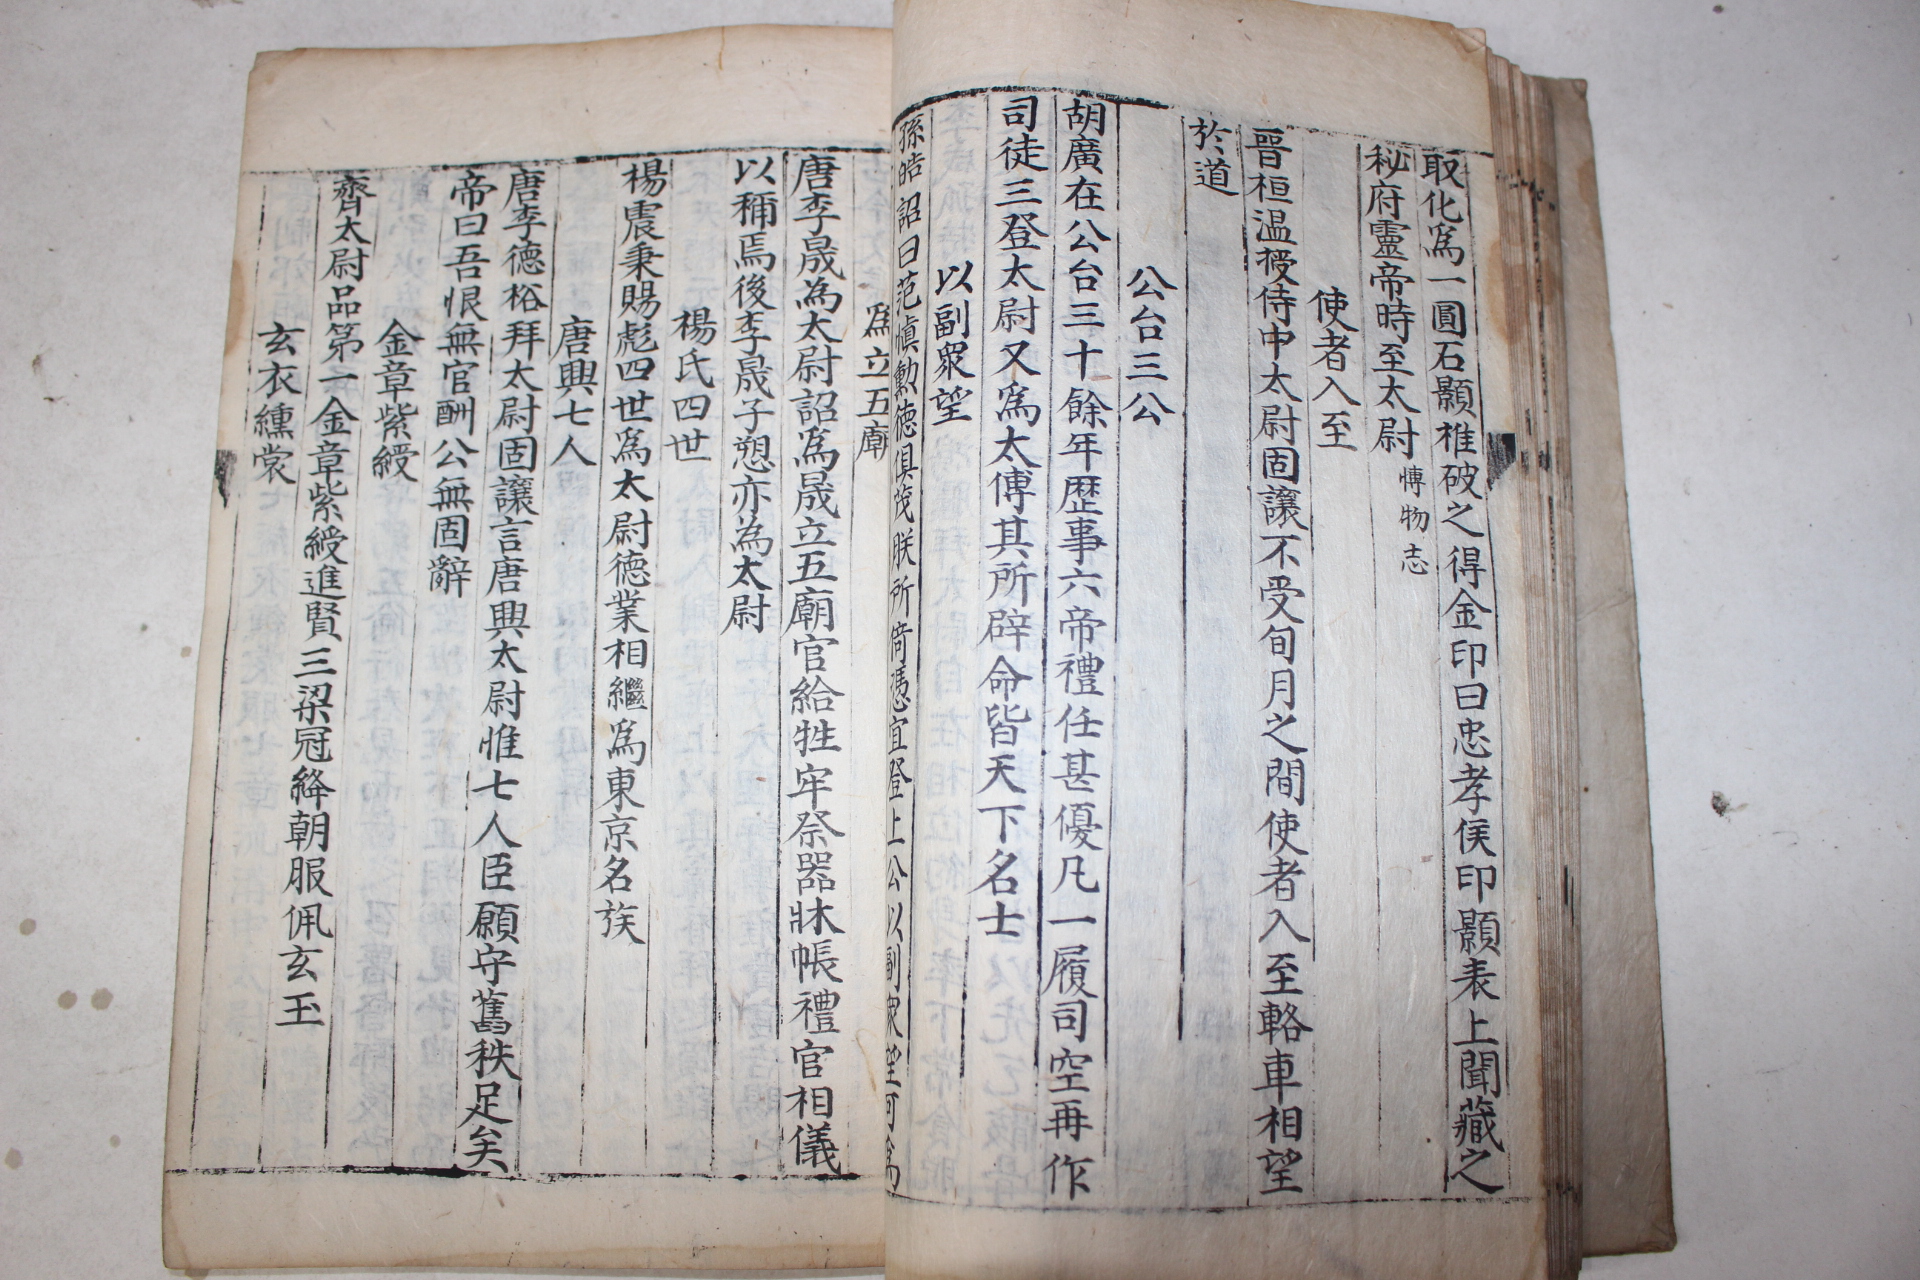 取化爲一圓石顥椎破之得金印曰忠孝侯印顥表上聞藏之
秘府靈帝時至太尉 博物志
使者入至
晉桓溫授侍中太尉固讓不受旬月之間使者入至輅車相望
於道
公台三公
胡廣在公台三十餘年歷事六帝禮任甚優凡一履司空再作
司徒三登太尉又爲太傅其所辟命皆天下名士
以副眾望
孫皓詔曰范愼勳德俱茂朕所倚憑宜登上公以副眾望可爲
爲立五廟
唐李晟為太尉詔爲晟立五廟官給牲牢祭器牀帳禮官相儀
以稱焉後李晟子愬亦為太尉
楊氏四世
楊震秉賜彪四世爲太尉德業相繼爲東京名族
唐興七人
唐李德裕拜太尉固讓言唐興太尉惟七人臣願守舊秩足矣
帝曰吾恨無官酬公無固辭
金章紫綬
齊太尉品第一金章紫綬進賢三梁冠絳朝服佩玄玉
玄衣纁裳